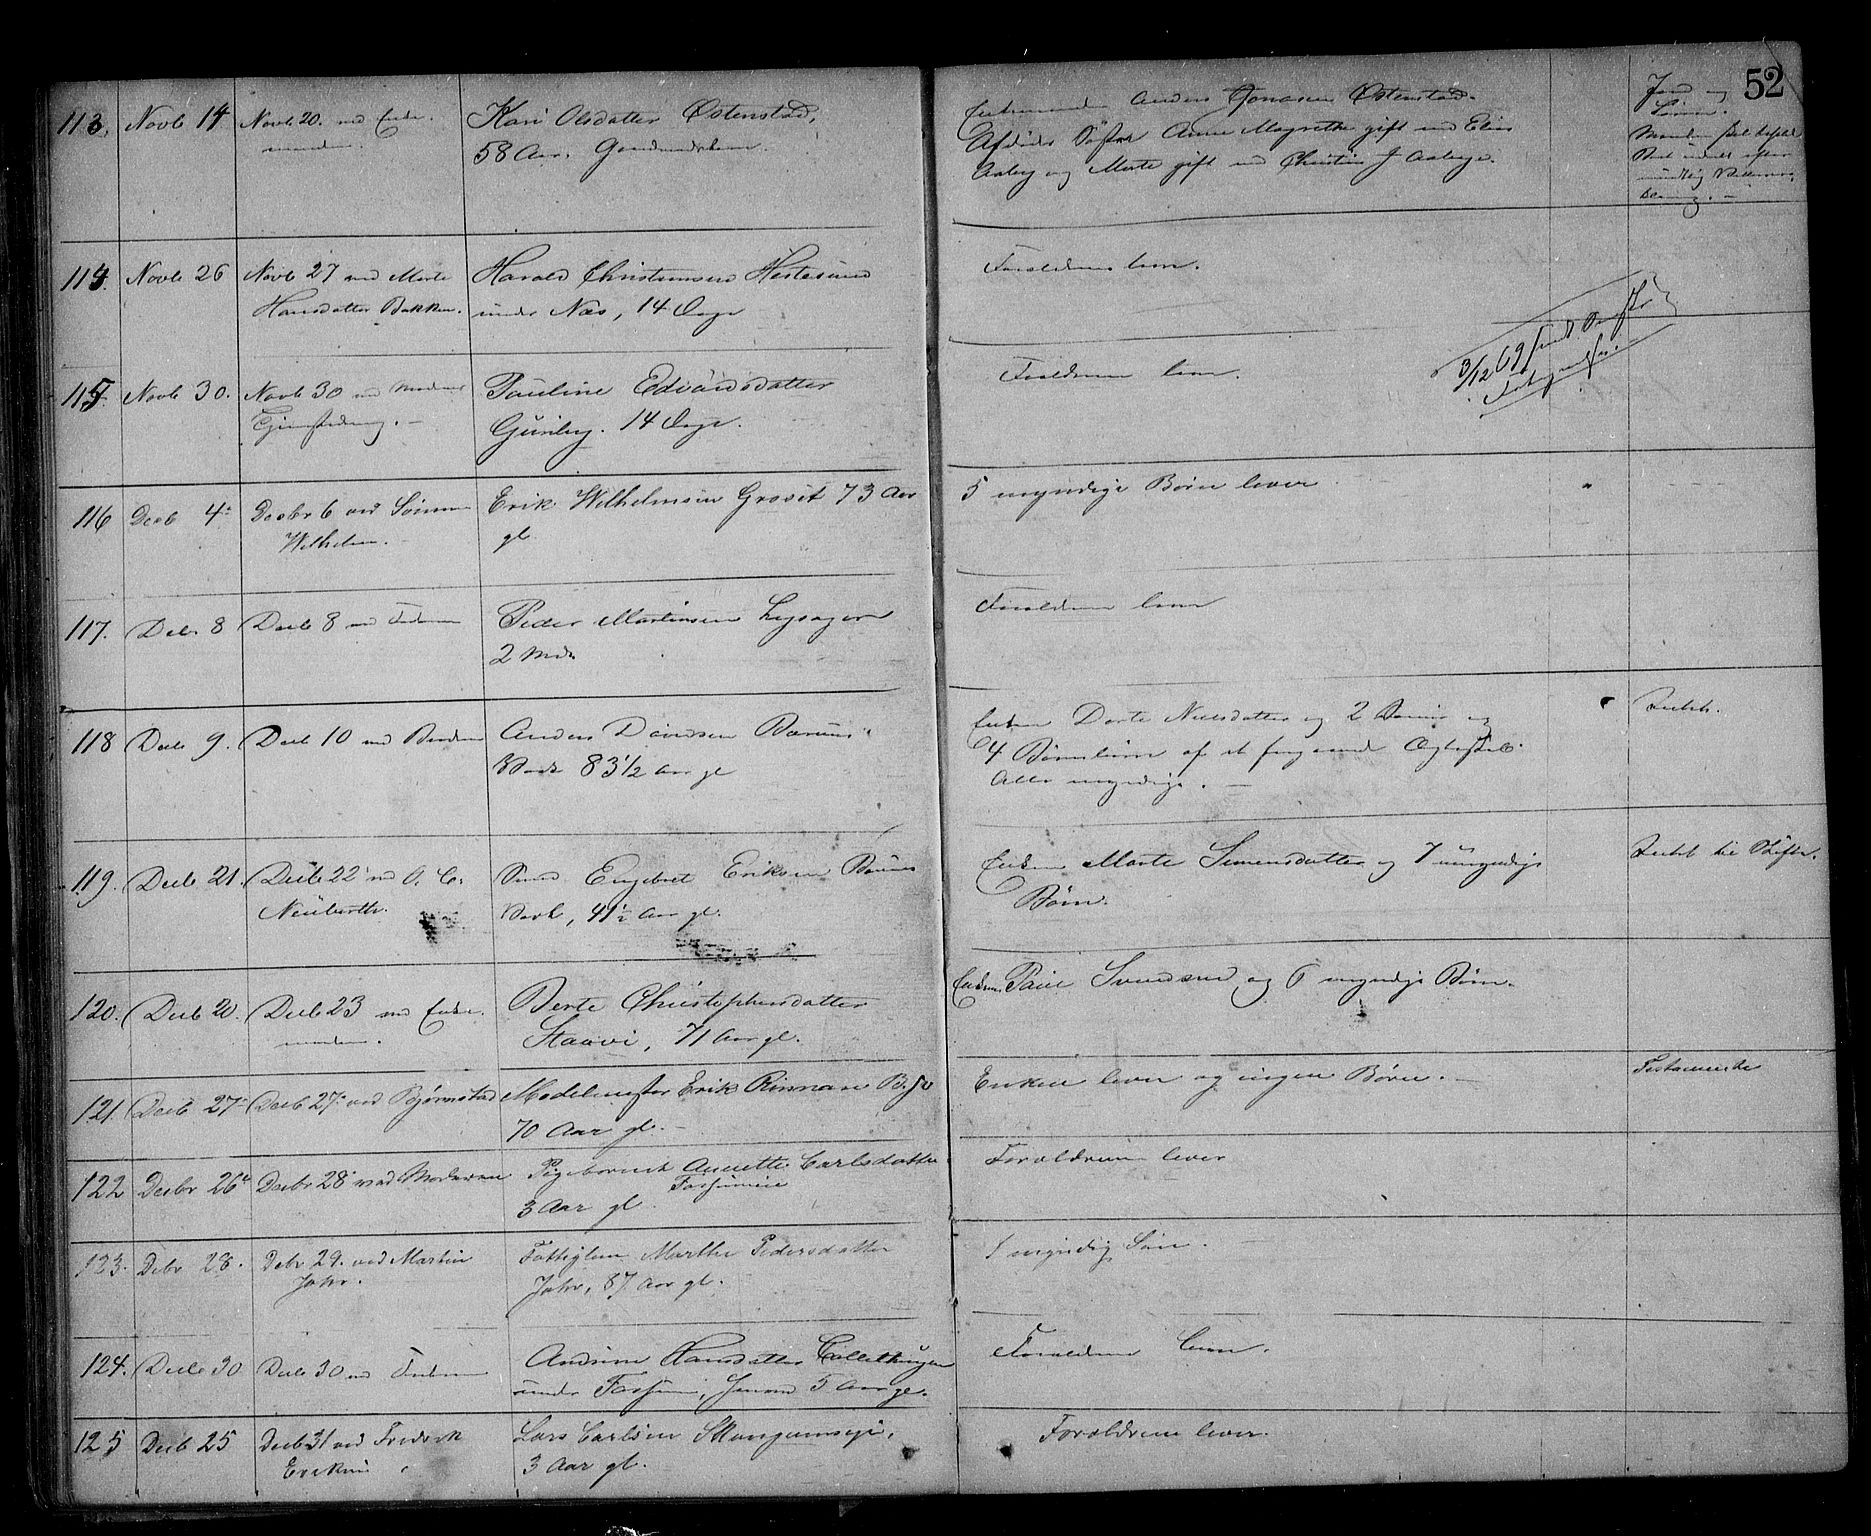 52
113. Novb 14 Novb 20. ved Enke- Kari Olsdatter Østenstad, Enkemanden Anders Jonasen Østenstad.
manden. 58 Aar. Gaardmandskone. Afdødes Søstre Anne Magrethe gift med Elias
Aaberg og Marte gift med Christian J Aaberge.
Jord og
Løsøre.
114. Novb 26 Novb 27 ved Marte Harald Christensen Hestesund Forældrene lever.
Hansdatter Bakken. under Næs, 14 Dage
3/12 69
115. Novb 30. Novb 30 ved Pauline Edvardsdatter Forældrene lever.
14 Dage.
116 Decb 4 Decbr 6 ved Sønnen Erik Wilhelmsen Grosit 73 Aar 5 myndige Børn lever
Wilhelm. gl.
117. Decb 8 Decb 8 ved Faderen Peder Martinsen Lysagern Forældrene lever
2 Mdr
118 Decb 9. Decb 10 ved Anders Davidsen Bærums Enken Dorte Nielsdatter og 2 Sønner og
Værk 83 1/2 Aar gl 4 Børnebørn af et foregaaende Ægteskab.
Alle myndige.
119. Decb 21. Decb 22 ved O. C. Smed Engebret Eriksen Bærums Enken Marte Simensdatter og 7 umyndige
Neuberth. Værk, 41 1/2 Aar gl. Børn.
til Skifte.
120. Decb 20. Decb 23 ved Enke- Berte Christophersdatter Enkem. Paul Svendsen og 6 myndige Børn.
manden. Staavi, 71 Aar gl.
121. Decb 27 Decb 27 ved Bjørnstad Modelmester Erik Rinnan B. Enken lever og ingen Børn. Testamente
70 Aar gl.
122 Decbr 26 Decbr 28 ved Moderen Pigebarnet Annette Carlsdatter Forældrene lever
Fossumeie
3 Aar gl.
123. Debr 28. Debr 29. ved Martin Fattiglem Marthe Pedersdatter 1 myndig Søn.
Jahr. Jahr, 87 Aar gl.
124. Decb 30 Decb 30 ved Faderen Andrine Hansdatter Collethaugen Forældrene lever.
under Fossum, 5 Aar gl.
125 Decb 25 Decb 31 ved Fredrik Lars Carlsen Skougumseje, Forældrene lever.
Eriksen 3 Aar gl.